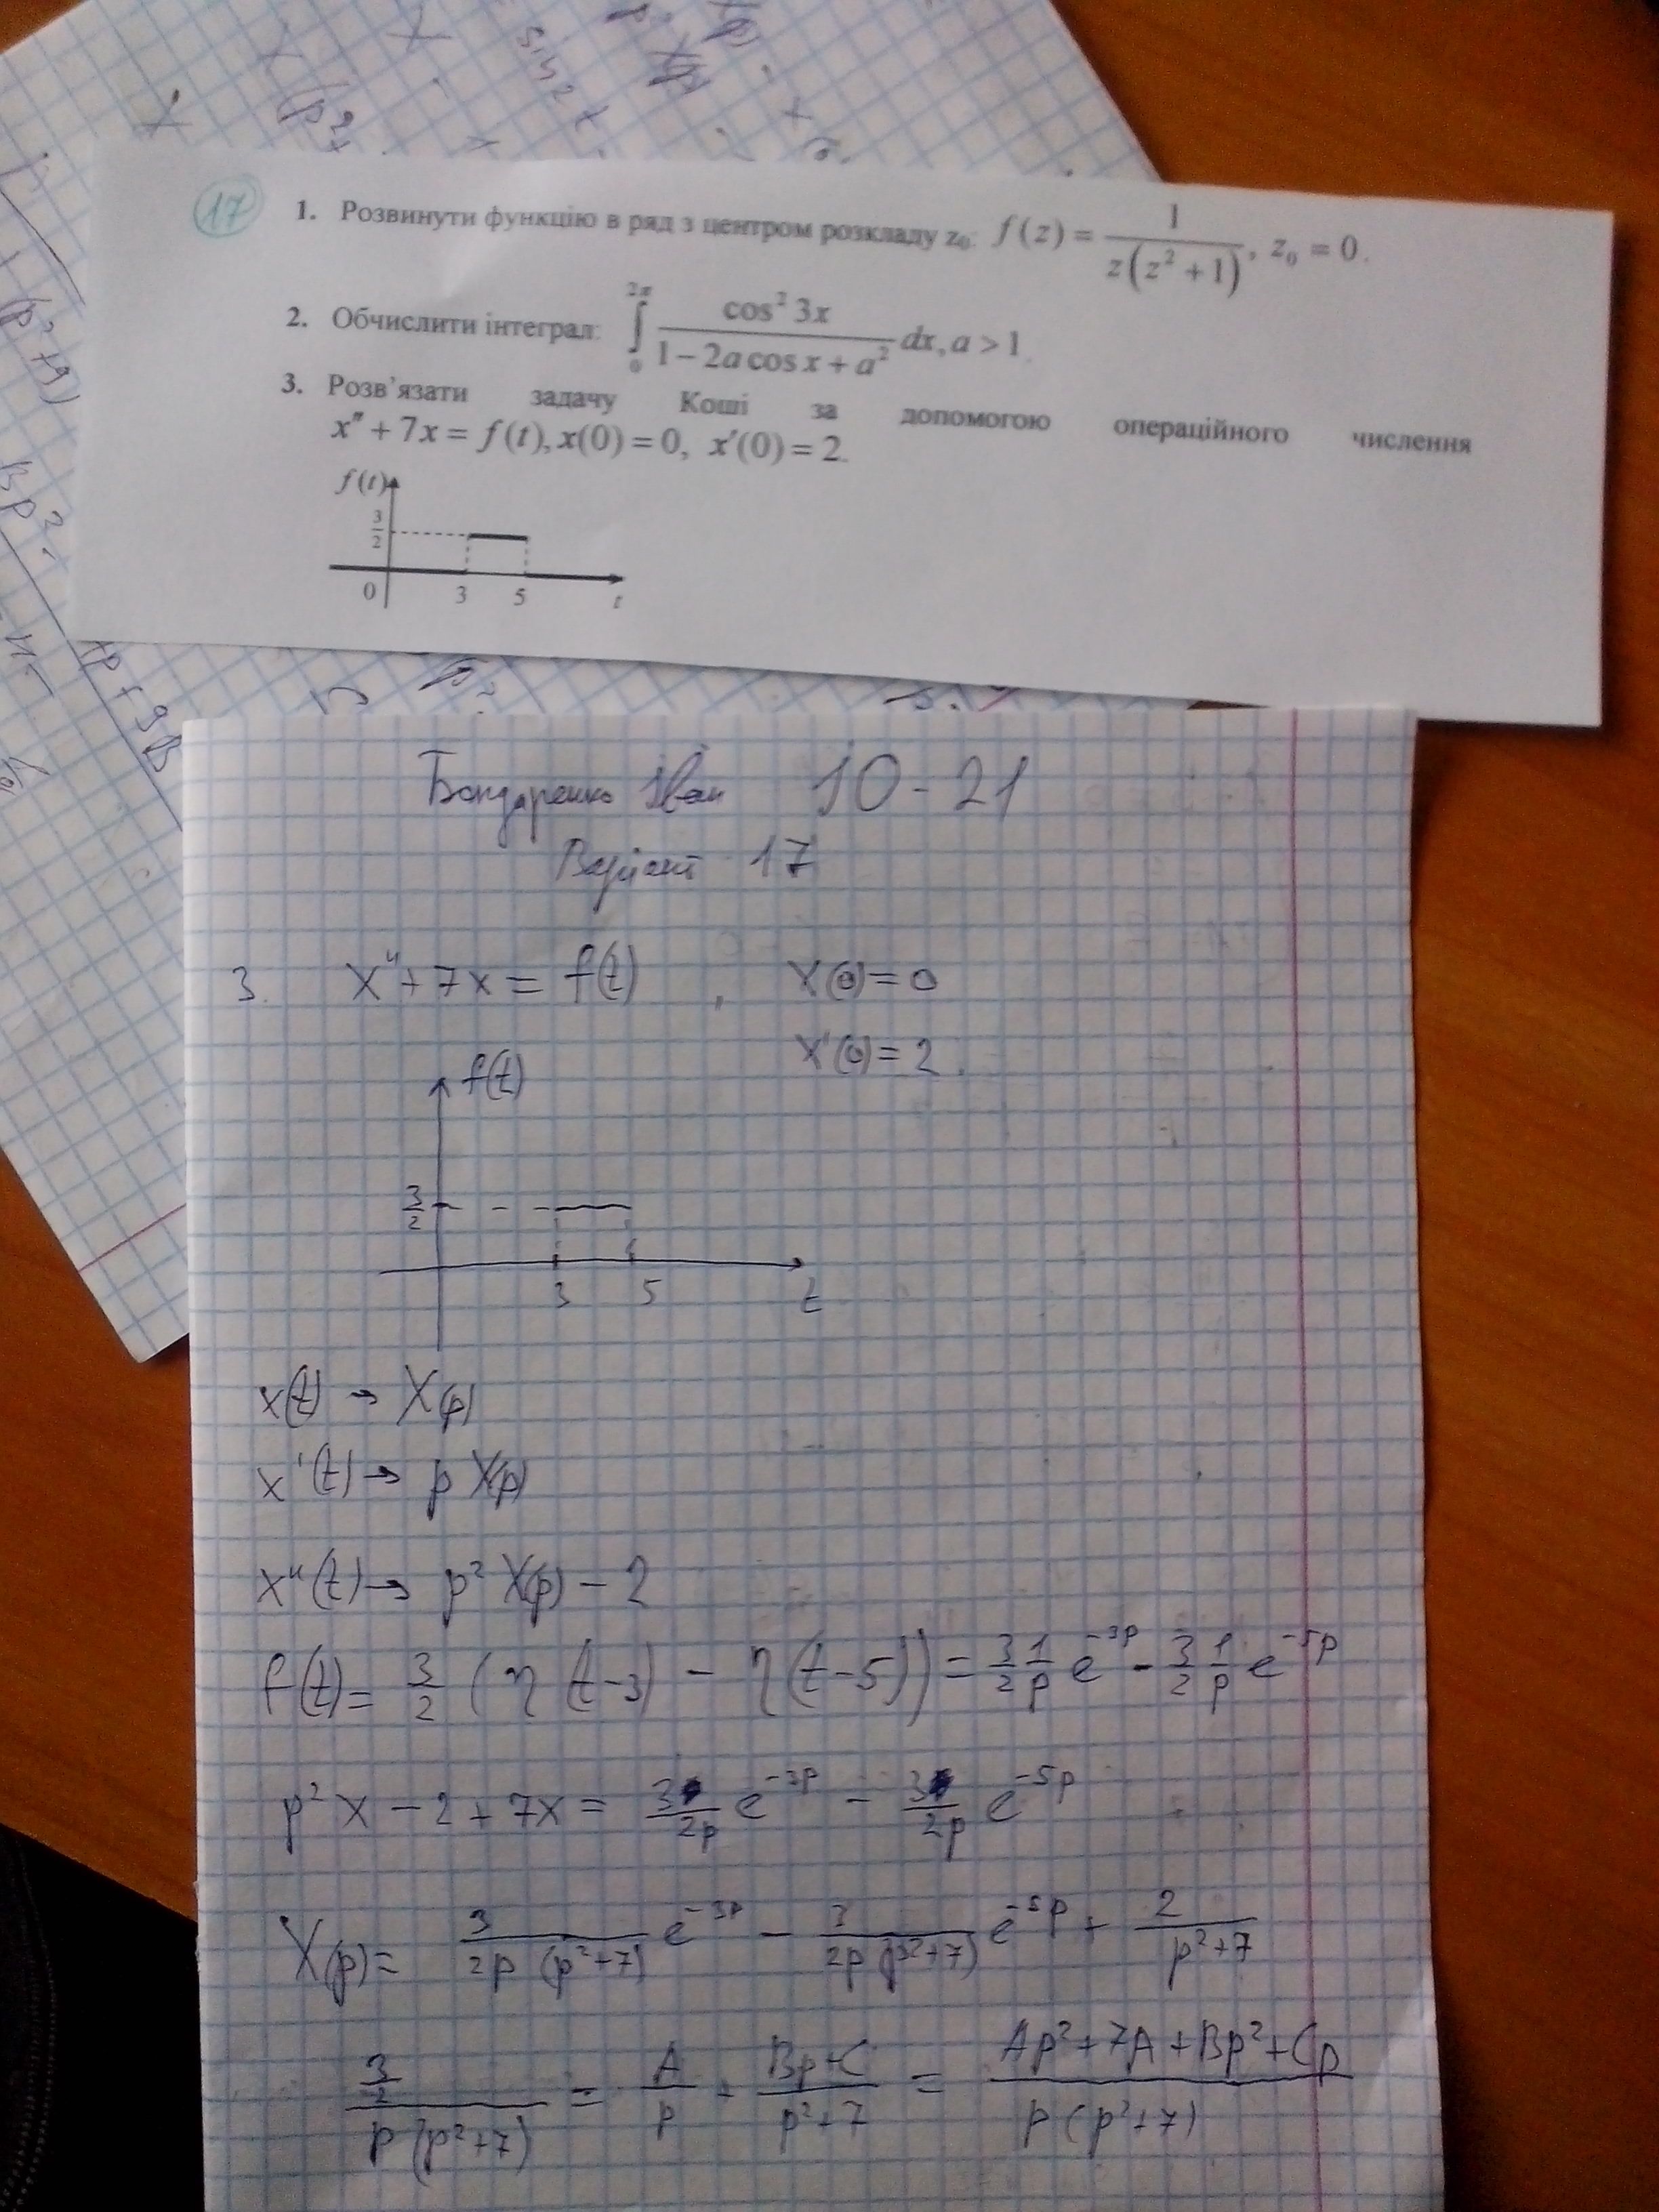 17
1. Розвинути функцію в ряд з центром розкладу z₀: f(z) = 1/(z(z² + 1)), z₀ = 0.
2. Обчислити інтеграл: ∫₀^{2π} cos² 3x/(1 − 2a cos x + a²) dx, a > 1.
3. Розв'язати задачу Коші за допомогою операційного числення
x″ + 7x = f(t), x(0) = 0, x′(0) = 2.
f(t)
3/2
0 3 5 t
Бондаренко Іван ІО-21
Варіант 17
3. x″ + 7x = f(t), x(0) = 0
x′(0) = 2.
f(t)
3/2
3 5 t
x(t) → X(p)
x′(t) → p X(p)
x″(t) → p² X(p) − 2
f(t) = 3/2 (η(t−3) − η(t−5)) = 3/2 1/p e^{−3p} − 3/2 1/p e^{−5p}
p² X − 2 + 7X = 3/2p e^{−3p} − 3/2p e^{−5p}
X(p) = 3/(2p (p²+7)) e^{−3p} − 3/(2p (p²+7)) e^{−5p} + 2/(p²+7)
(3/2)/(p(p²+7)) = A/p + (Bp+C)/(p²+7) = (Ap² + 7A + Bp² + Cp)/(p(p²+7))